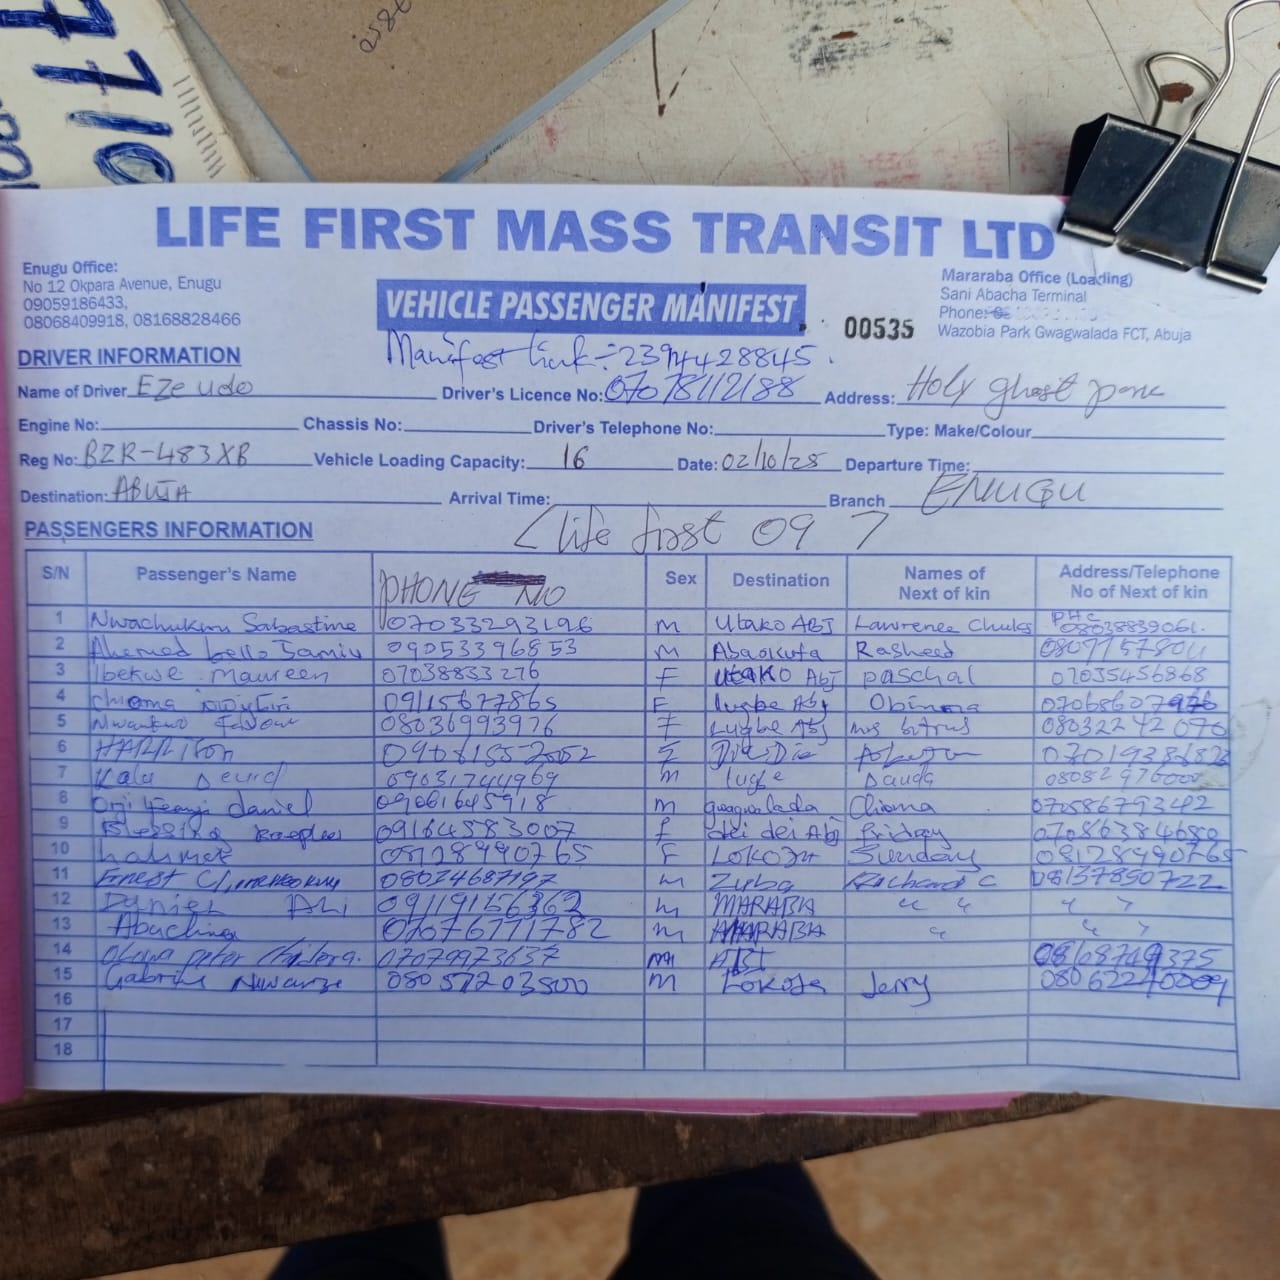 7710
LIFE FIRST MASS TRANSIT LTD
Enugu Office:
No 12 Okpara Avenue, Enugu
09059186433,
08068409918, 08168828466
VEHICLE PASSENGER MANIFEST
00535
Mararaba Office (Loading)
Sani Abacha Terminal
Phone:
Wazobia Park Gwagwalada FCT, Abuja
Manifest link:-23944428845.
DRIVER INFORMATION
Name of Driver Eze udo Driver's Licence No: 07078112188 Address: Holy ghost park
Engine No: Chassis No: Driver's Telephone No: Type: Make/Colour
Reg No: BZR-483XB Vehicle Loading Capacity: 16 Date: 02/10/25 Departure Time:
Destination: ABUJA Arrival Time: Branch ENUGU
PASSENGERS INFORMATION
< life first 09 >
S/N Passenger's Name PHONE NO Sex Destination Names of Next of kin Address/Telephone No of Next of kin
1 Nwachukwu Sabastine 07033293196 m Utako ABJ Lawrence Chuks PHC 08038839061.
2 Ahemed bello Jamiu 09053396853 m Abaokuta Rasheed
3 Ibekwe Maureen 07038833276 F Utako Abj paschal 07035456868
4 chioma 09115677865 F lugbe Abj Obinna
5 08036993976 F Lugbe Abj mrs bitrus 08032242070
6 HARRISON
7 Kalu David 09031744969 m lugbe Dauda
8 Orji Ifeanyi daniel 09061645918 m gwagwalada Chioma 07058679342
9 Blessing 09164583007 f dei dei Abj Friday 07086384680
10 08128990765 F LOKOJA Sunday 08128990765
11 Ernest 08024687197 m Zuba Richard C 08137850722
12 Daniel Ali 09119156362 m MARABA " " " "
13 Abuchina 07076771782 m MARABA " " "
14 peter 07079973637 m ABJ 08168749375
15 Gabriel 08057203500 m Lokoja Jerry 08062240009
16
17
18